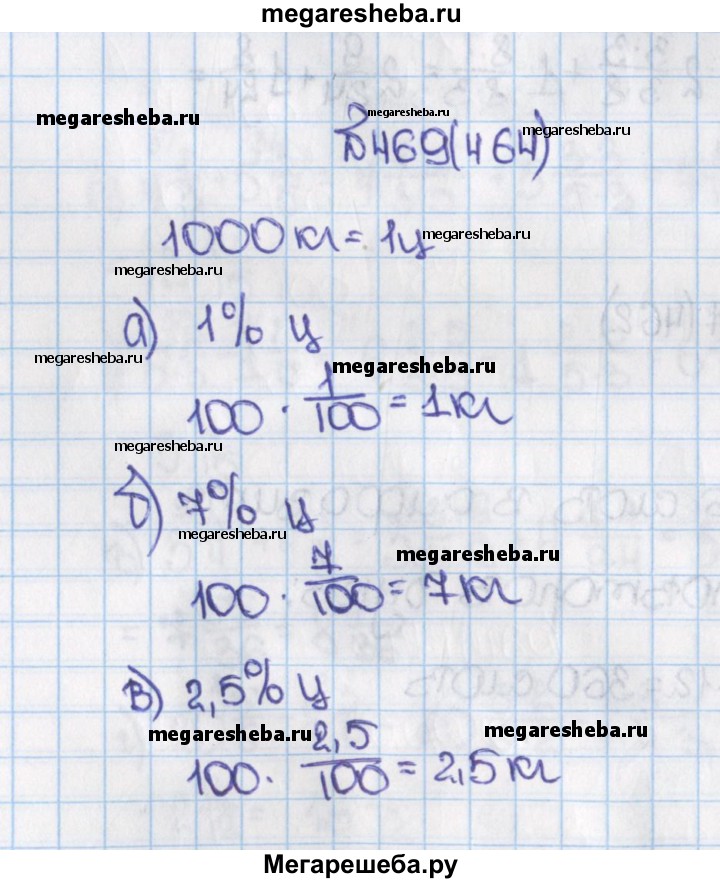 megaresheba.ru
megaresheba.ru
megaresheba.ru
№469(464)
megaresheba.ru
1000кг = 1ц
megaresheba.ru
megaresheba.ru
а) 1% ц
megaresheba.ru
megaresheba.ru
100 · 1/100 = 1кг
megaresheba.ru
б) 7% ц
megaresheba.ru
megaresheba.ru
100 · 7/100 = 7кг
в) 2,5% ц
megaresheba.ru
megaresheba.ru
100 · 2,5/100 = 2,5кг
Мегарешеба.ру